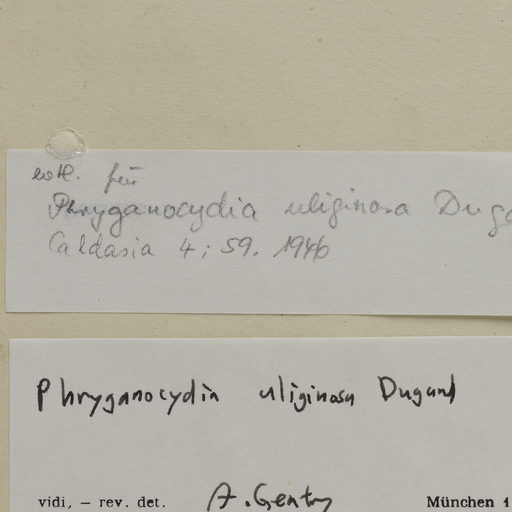 für
Phryganocydia uliginosa Duga
Caldasia 4; 59. 1946
Phryganocydia uliginosa Dugand
vidi, – rev. det. A. Gentry München 1